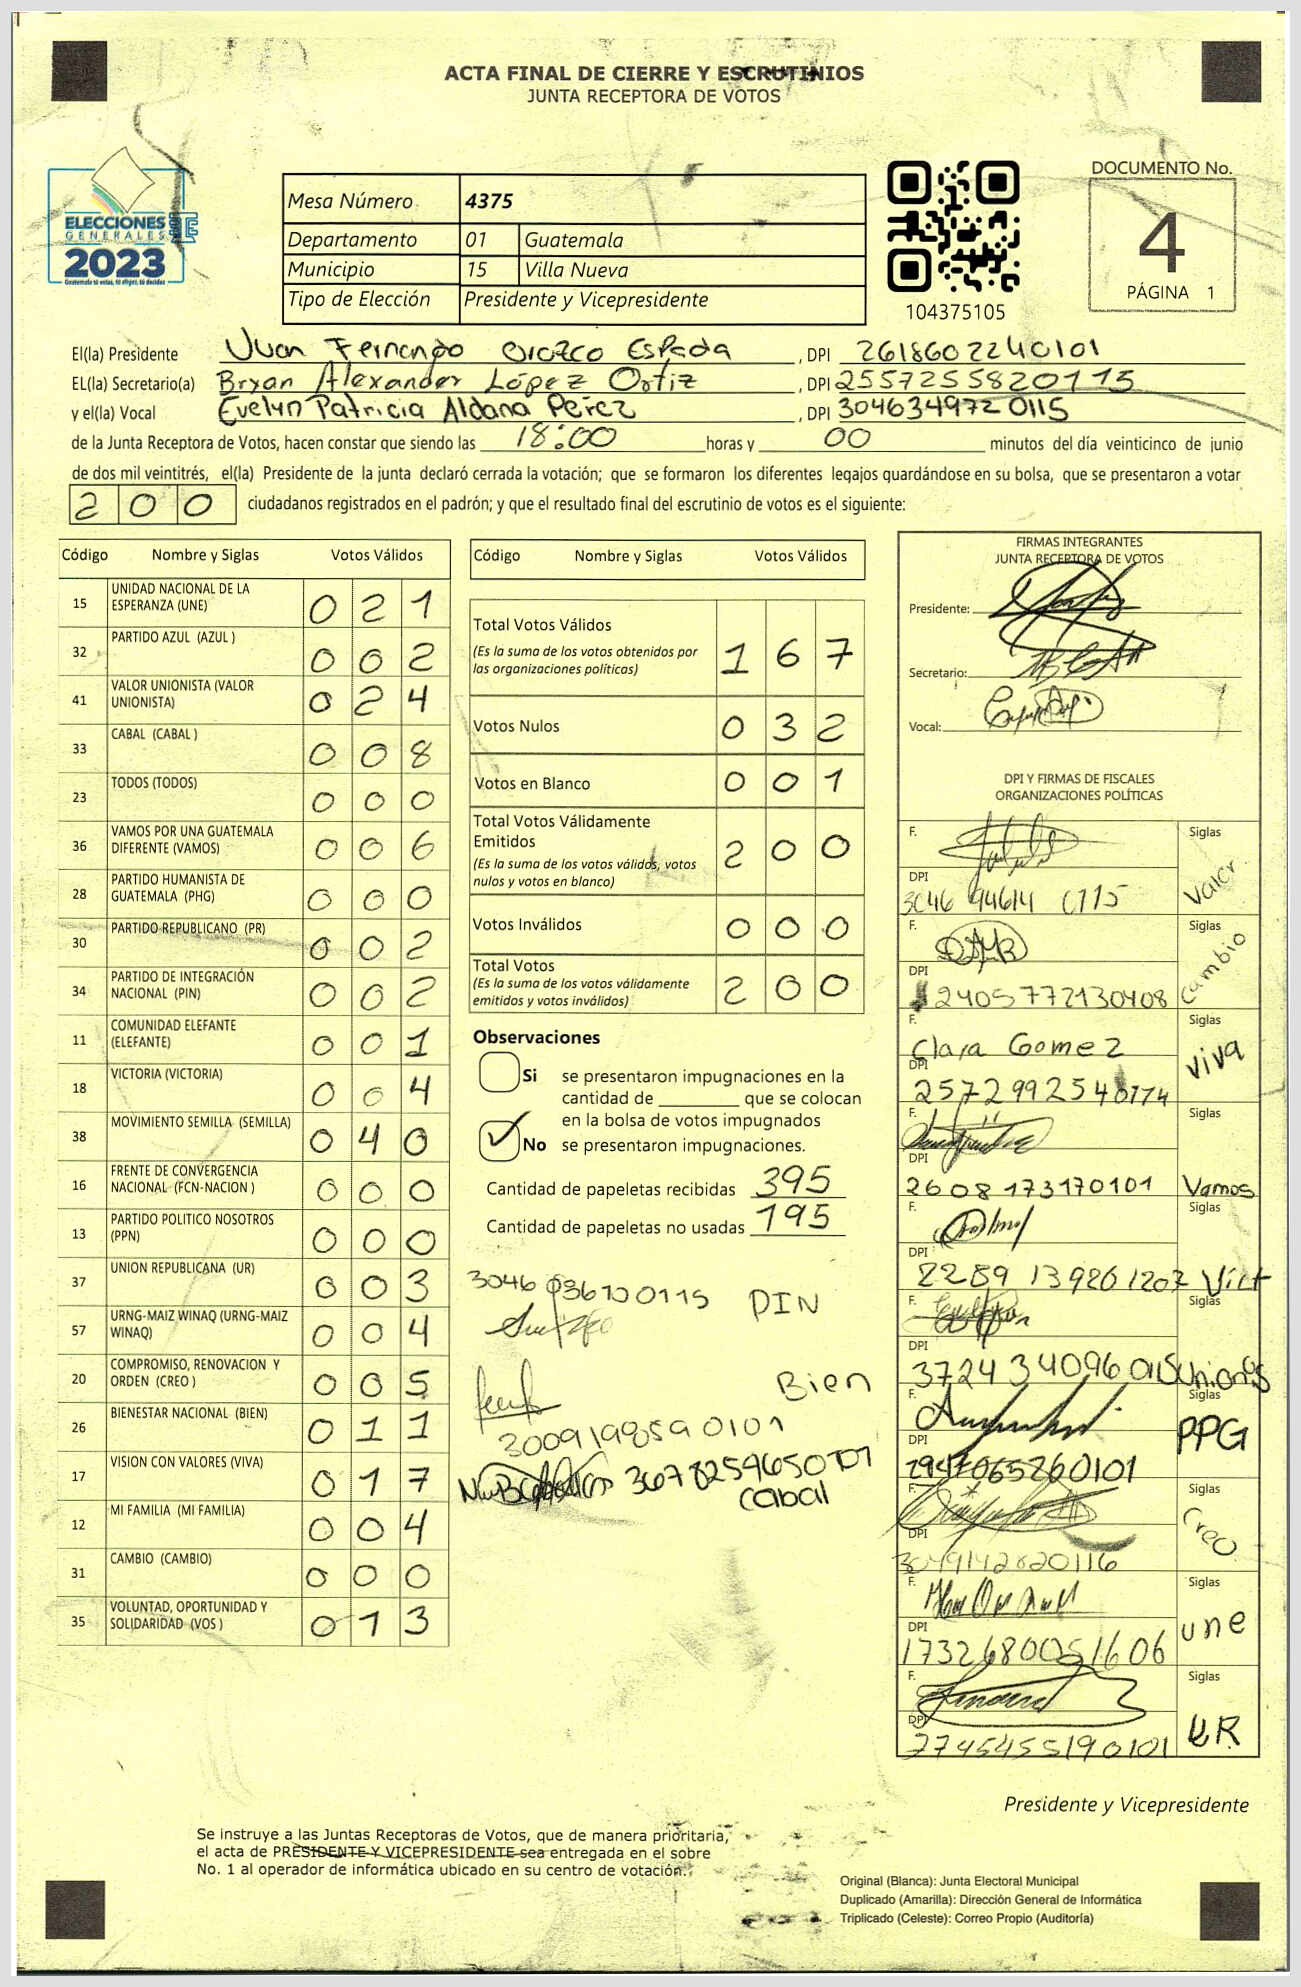 ACTA FINAL DE CIERRE Y ESCRUTINIOS
JUNTA RECEPTORA DE VOTOS
ELECCIONES
GENERALES
2023
Guatemala tú votas, tú eliges, tú decides
Mesa Número 4375
Departamento 01 Guatemala
Municipio 15 Villa Nueva
Tipo de Elección Presidente y Vicepresidente
104375105
DOCUMENTO No.
4
PÁGINA 1
El(la) Presidente Juan Fernando Orozco Espada , DPI 2618602240101
EL(la) Secretario(a) Bryan Alexander López Ortiz , DPI 2557255820115
y el(la) Vocal Evelyn Patricia Aldana Perez , DPI 3046349720115
de la Junta Receptora de Votos, hacen constar que siendo las 18:00 horas y 00 minutos del día veinticinco de junio
de dos mil veintitrés, el(la) Presidente de la junta declaró cerrada la votación; que se formaron los diferentes legajos guardándose en su bolsa, que se presentaron a votar
200 ciudadanos registrados en el padrón; y que el resultado final del escrutinio de votos es el siguiente:
Código Nombre y Siglas Votos Válidos
15 UNIDAD NACIONAL DE LA ESPERANZA (UNE) 021
32 PARTIDO AZUL (AZUL ) 002
41 VALOR UNIONISTA (VALOR UNIONISTA) 024
33 CABAL (CABAL ) 008
23 TODOS (TODOS) 000
36 VAMOS POR UNA GUATEMALA DIFERENTE (VAMOS) 006
28 PARTIDO HUMANISTA DE GUATEMALA (PHG) 000
30 PARTIDO REPUBLICANO (PR) 002
34 PARTIDO DE INTEGRACIÓN NACIONAL (PIN) 002
11 COMUNIDAD ELEFANTE (ELEFANTE) 001
18 VICTORIA (VICTORIA) 004
38 MOVIMIENTO SEMILLA (SEMILLA) 040
16 FRENTE DE CONVERGENCIA NACIONAL (FCN-NACION ) 000
13 PARTIDO POLITICO NOSOTROS (PPN) 000
37 UNION REPUBLICANA (UR) 003
57 URNG-MAIZ WINAQ (URNG-MAIZ WINAQ) 004
20 COMPROMISO, RENOVACION Y ORDEN (CREO ) 005
26 BIENESTAR NACIONAL (BIEN) 011
17 VISION CON VALORES (VIVA) 017
12 MI FAMILIA (MI FAMILIA) 004
31 CAMBIO (CAMBIO) 000
35 VOLUNTAD, OPORTUNIDAD Y SOLIDARIDAD (VOS ) 013
Código Nombre y Siglas Votos Válidos
Total Votos Válidos
(Es la suma de los votos obtenidos por
las organizaciones políticas) 167
Votos Nulos 032
Votos en Blanco 001
Total Votos Válidamente
Emitidos 200
(Es la suma de los votos válidos, votos
nulos y votos en blanco)
Votos Inválidos 000
Total Votos
(Es la suma de los votos válidamente
emitidos y votos inválidos) 200
Observaciones
Si se presentaron impugnaciones en la
cantidad de ________ que se colocan
en la bolsa de votos impugnados
No se presentaron impugnaciones.
Cantidad de papeletas recibidas 395
Cantidad de papeletas no usadas 195
PIN
Bien
3009198590101
3678259650101
cabal
FIRMAS INTEGRANTES
JUNTA RECEPTORA DE VOTOS
Presidente:
Secretario:
Vocal:
DPI Y FIRMAS DE FISCALES
ORGANIZACIONES POLÍTICAS
F. Siglas
DPI 3046 94614 0115 Valor
F. Siglas
DPI 2405772130408 Cambio
F. Clara Gomez Siglas
DPI 2572992540174 Viva
F. Siglas
DPI 2608173170101 Vamos
F. Siglas
DPI 2289 13926 1207 Vict
F. Siglas
DPI 3724340960115 Unionis
F. Siglas
DPI 2947065260101 PPG
F. Siglas
DPI 3049142820116 Creo
F. Siglas
DPI 1732680051606 une
F. Siglas
DPI 2745455190101 UR
Presidente y Vicepresidente
Se instruye a las Juntas Receptoras de Votos, que de manera prioritaria,
el acta de PRESIDENTE Y VICEPRESIDENTE sea entregada en el sobre
No. 1 al operador de informática ubicado en su centro de votación.
Original (Blanca): Junta Electoral Municipal
Duplicado (Amarilla): Dirección General de Informática
Triplicado (Celeste): Correo Propio (Auditoría)